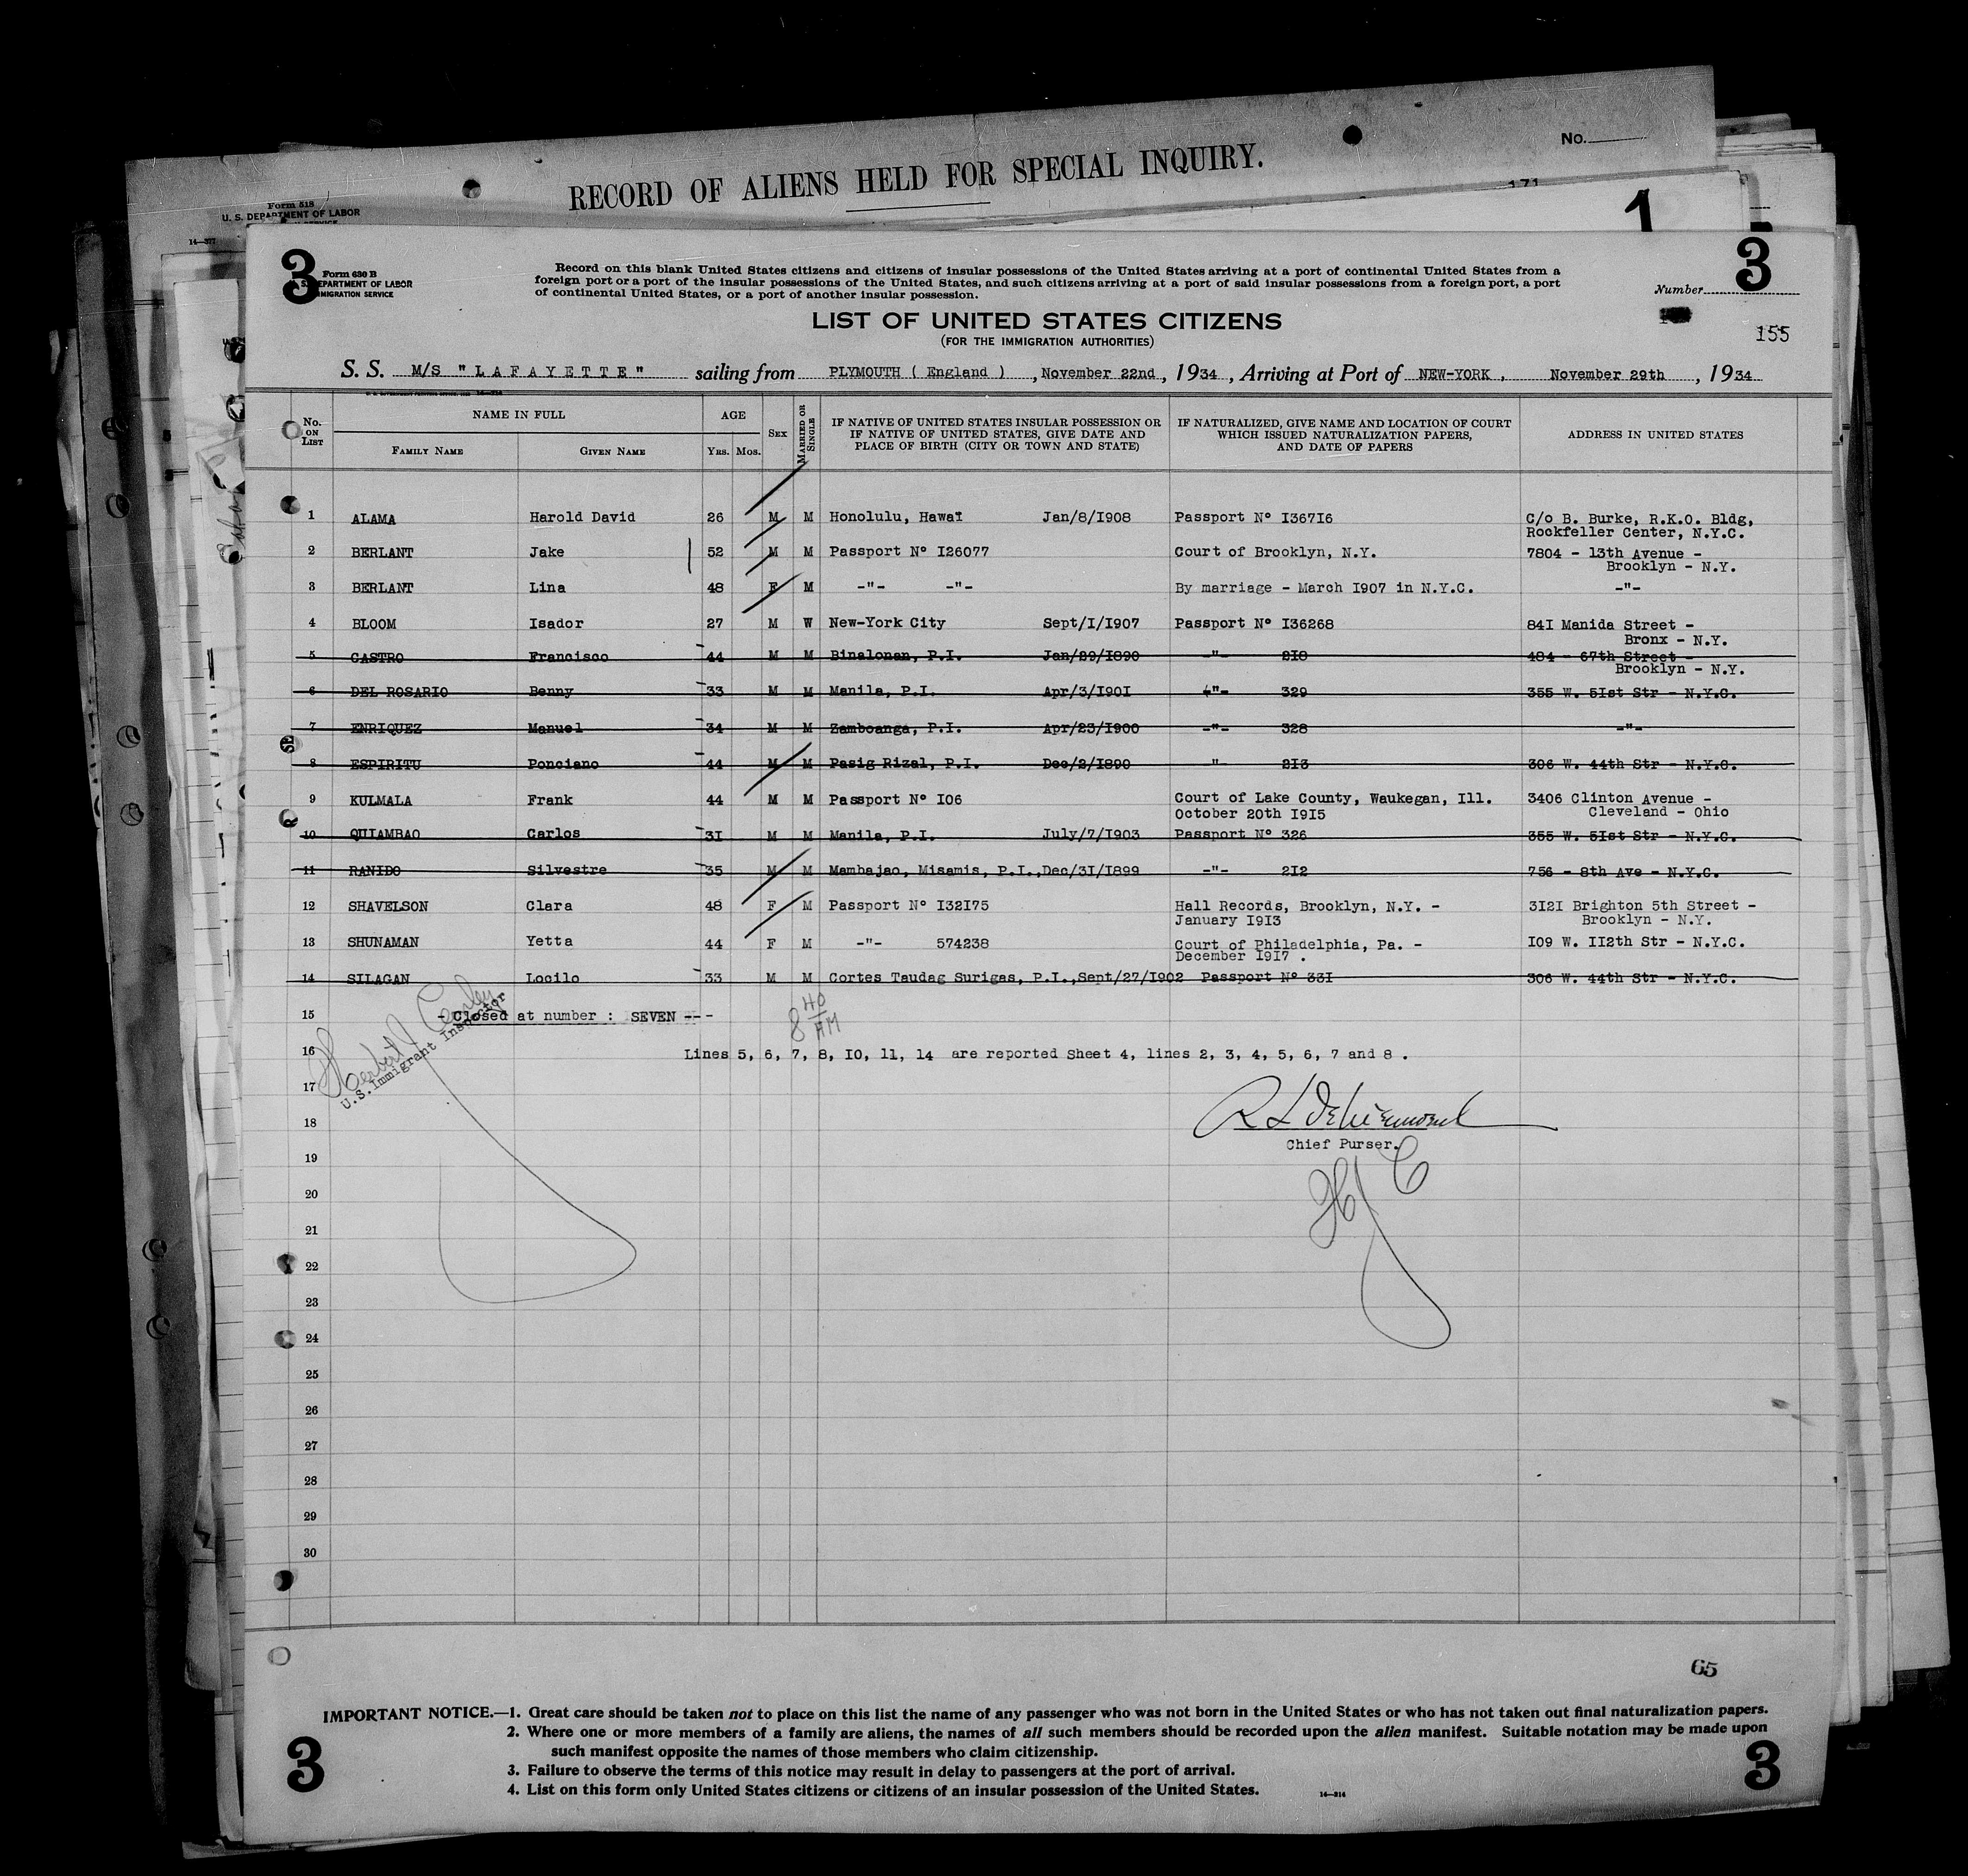 No.
RECORD OF ALIENS HELD FOR SPECIAL INQUIRY.
Form 518
U. S. DEPARTMENT OF LABOR
14—377
171
1
3
3
Form 630 B
U. S. DEPARTMENT OF LABOR
IMMIGRATION SERVICE
Record on this blank United States citizens and citizens of insular possessions of the United States arriving at a port of continental United States from a
foreign port or a port of the insular possessions of the United States, and such citizens arriving at a port of said insular possessions from a foreign port, a port
of continental United States, or a port of another insular possession.
Number
LIST OF UNITED STATES CITIZENS
(FOR THE IMMIGRATION AUTHORITIES)
155
S. S. M/S "LAFAYETTE" sailing from PLYMOUTH ( England ) , November 22nd , 1934 , Arriving at Port of NEW-YORK , November 29th , 1934
No. ON LIST NAME IN FULL AGE SEX MARRIED OR SINGLE IF NATIVE OF UNITED STATES INSULAR POSSESSION OR IF NATIVE OF UNITED STATES, GIVE DATE AND PLACE OF BIRTH (CITY OR TOWN AND STATE) IF NATURALIZED, GIVE NAME AND LOCATION OF COURT WHICH ISSUED NATURALIZATION PAPERS, AND DATE OF PAPERS ADDRESS IN UNITED STATES
FAMILY NAME GIVEN NAME YRS. MOS.
1 ALAMA Harold David 26 M M Honolulu, Hawaï Jan/8/I908 Passport Nº I367I6 C/o B. Burke, R.K.O. Bldg,
Rockfeller Center, N.Y.C.
2 BERLANT Jake 52 M M Passport Nº I26077 Court of Brooklyn, N.Y. 7804 - 13th Avenue -
Brooklyn - N.Y.
3 BERLANT Lina 48 F M -"- -"- By marriage - March I907 in N.Y.C. -"-
4 BLOOM Isador 27 M W New-York City Sept/I/I907 Passport Nº I36268 84I Manida Street -
Bronx - N.Y.
5 CASTRO Francisco 44 M M Binalonan, P.I. Jan/29/I890 -"- 2I8 484 - 67th Street -
Brooklyn - N.Y.
6 DEL ROSARIO Benny 33 M M Manila, P.I. Apr/3/I90I -"- 329 355 W. 5Ist Str - N.Y.C.
7 ENRIQUEZ Manuel 34 M M Zamboanga, P.I. Apr/23/I900 -"- 328 -"-
8 ESPIRITU Ponciano 44 M M Pasig Rizal, P.I. Dec/2/I890 -"- 2I3 306 W. 44th Str - N.Y.C.
9 KULMALA Frank 44 M M Passport Nº I06 Court of Lake County, Waukegan, Ill. 3406 Clinton Avenue -
October 20th I9I5 Cleveland - Ohio
10 QUIAMBAO Carlos 3I M M Manila, P.I. July/7/I903 Passport Nº 326 355 W. 5Ist Str - N.Y.C.
11 RANIDO Silvestre 35 M M Mambajao, Misamis, P.I.,Dec/3I/I899 -"- 2I2 756 - 8th Ave - N.Y.C.
12 SHAVELSON Clara 48 F M Passport Nº I32I75 Hall Records, Brooklyn, N.Y. - 3I2I Brighton 5th Street -
January I9I3 Brooklyn - N.Y.
13 SHUNAMAN Yetta 44 F M -"- 574238 Court of Philadelphia, Pa. - I09 W. II2th Str - N.Y.C.
December I9I7 .
14 SILAGAN Locilo 33 M M Cortes Taudag Surigas, P.I.,Sept/27/I902 Passport Nº 33I 306 W. 44th Str - N.Y.C.
15 - Closed at number : SEVEN ---
8 40 AM
16 Lines 5, 6, 7, 8, IO, 11, 14 are reported Sheet 4, lines 2, 3, 4, 5, 6, 7 and 8 .
U.S. Immigrant Inspector
17
18
Chief Purser.
19
20
21
22
23
24
25
26
27
28
29
30
65
IMPORTANT NOTICE.—1. Great care should be taken not to place on this list the name of any passenger who was not born in the United States or who has not taken out final naturalization papers.
2. Where one or more members of a family are aliens, the names of all such members should be recorded upon the alien manifest. Suitable notation may be made upon
such manifest opposite the names of those members who claim citizenship.
3. Failure to observe the terms of this notice may result in delay to passengers at the port of arrival.
4. List on this form only United States citizens or citizens of an insular possession of the United States.
14—314
3
3